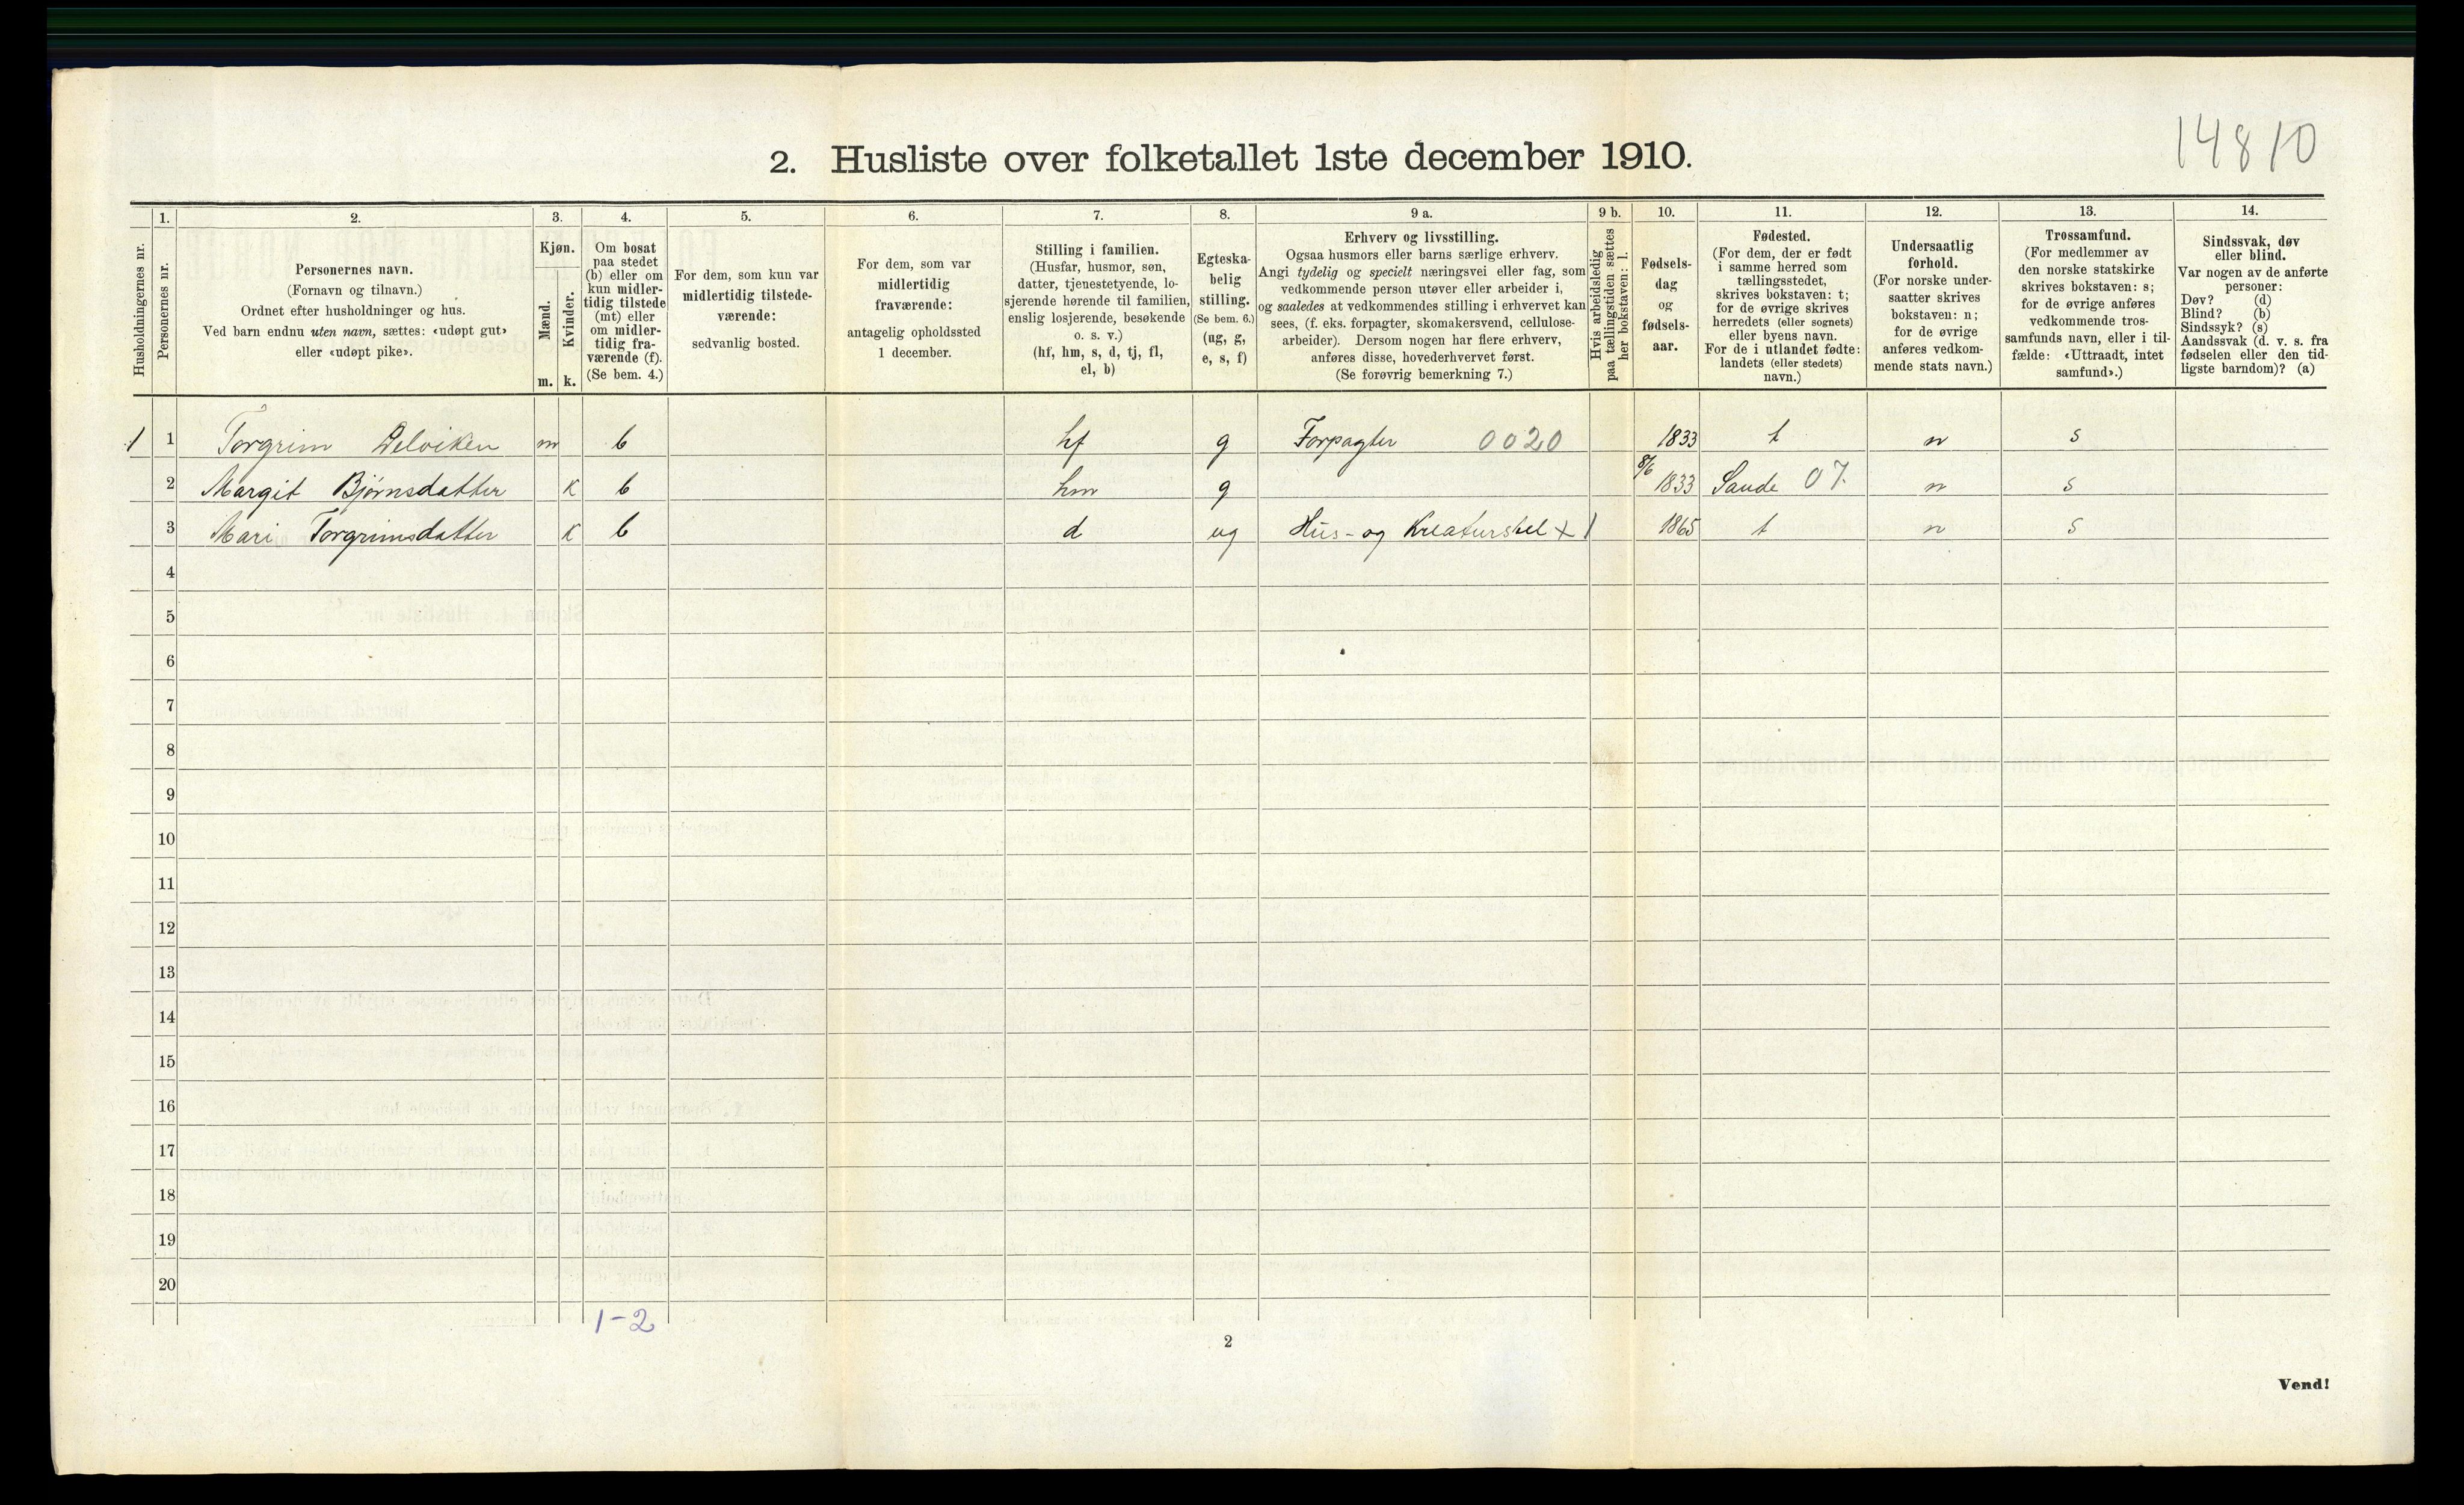 14810
2. Husliste over folketallet 1ste december 1910.
Husholdningernes nr.
1.
Personernes nr.
2.
Personernes navn.
(Fornavn og tilnavn.)
Ordnet efter husholdninger og hus.
Ved barn endnu uten navn, sættes: «udøpt gut»
eller «udøpt pike».
3.
Kjøn.
Mænd.
Kvinder.
m. k.
4.
Om bosat
paa stedet
(b) eller om
kun midler-
tidig tilstede
(mt) eller
om midler-
tidig fra-
værende (f).
(Se bem. 4.)
5.
For dem, som kun var
midlertidig tilstede-
værende:
sedvanlig bosted.
6.
For dem, som var
midlertidig
fraværende:
antagelig opholdssted
1 december.
7.
Stilling i familien.
(Husfar, husmor, søn,
datter, tjenestetyende, lo-
sjerende hørende til familien,
enslig losjerende, besøkende
o. s. v.)
(hf, hm, s, d, tj, fl,
el, b)
8.
Egteska-
belig
stilling.
(Se bem. 6.)
(ug, g,
e, s, f)
9 a.
Erhverv og livsstilling.
Ogsaa husmors eller barns særlige erhverv.
Angi tydelig og specielt næringsvei eller fag, som
vedkommende person utøver eller arbeider i,
og saaledes at vedkommendes stilling i erhvervet kan
sees, (f. eks. forpagter, skomakersvend, cellulose-
arbeider). Dersom nogen har flere erhverv,
anføres disse, hovederhvervet først.
(Se forøvrig bemerkning 7.)
9 b.
Hvis arbeidsledig
paa tællingstiden sættes
her bokstaven: l.
10.
Fødsels-
dag
og
fødsels-
aar.
11.
Fødested.
(For dem, der er født
i samme herred som
tællingsstedet,
skrives bokstaven: t;
for de øvrige skrives
herredets (eller sognets)
eller byens navn.
For de i utlandet fødte:
landets (eller stedets)
navn.)
12.
Undersaatlig
forhold.
(For norske under-
saatter skrives
bokstaven: n;
for de øvrige
anføres vedkom-
mende stats navn.)
13.
Trossamfund.
(For medlemmer av
den norske statskirke
skrives bokstaven: s;
for de øvrige anføres
vedkommende tros-
samfunds navn, eller i til-
fælde: «Uttraadt, intet
samfund».)
14.
Sindssvak, døv
eller blind.
Var nogen av de anførte
personer:
Døv? (d)
Blind? (b)
Sindssyk? (s)
Aandssvak (d. v. s. fra
fødselen eller den tid-
ligste barndom)? (a)
1 1 Torgrim m b hf g Forpagter 0020 1833 t n s
2 Margit Bjørnsdatter k b hm g 8/6 1833 Saude 07. n s
3 Mari Torgrimsdatter k b d ug Hus- og Kreaturstel x 1 1865 t n s
4
5
6
7
8
9
10
11
12
13
14
15
16
17
18
19
20
1-2
2
Vend!